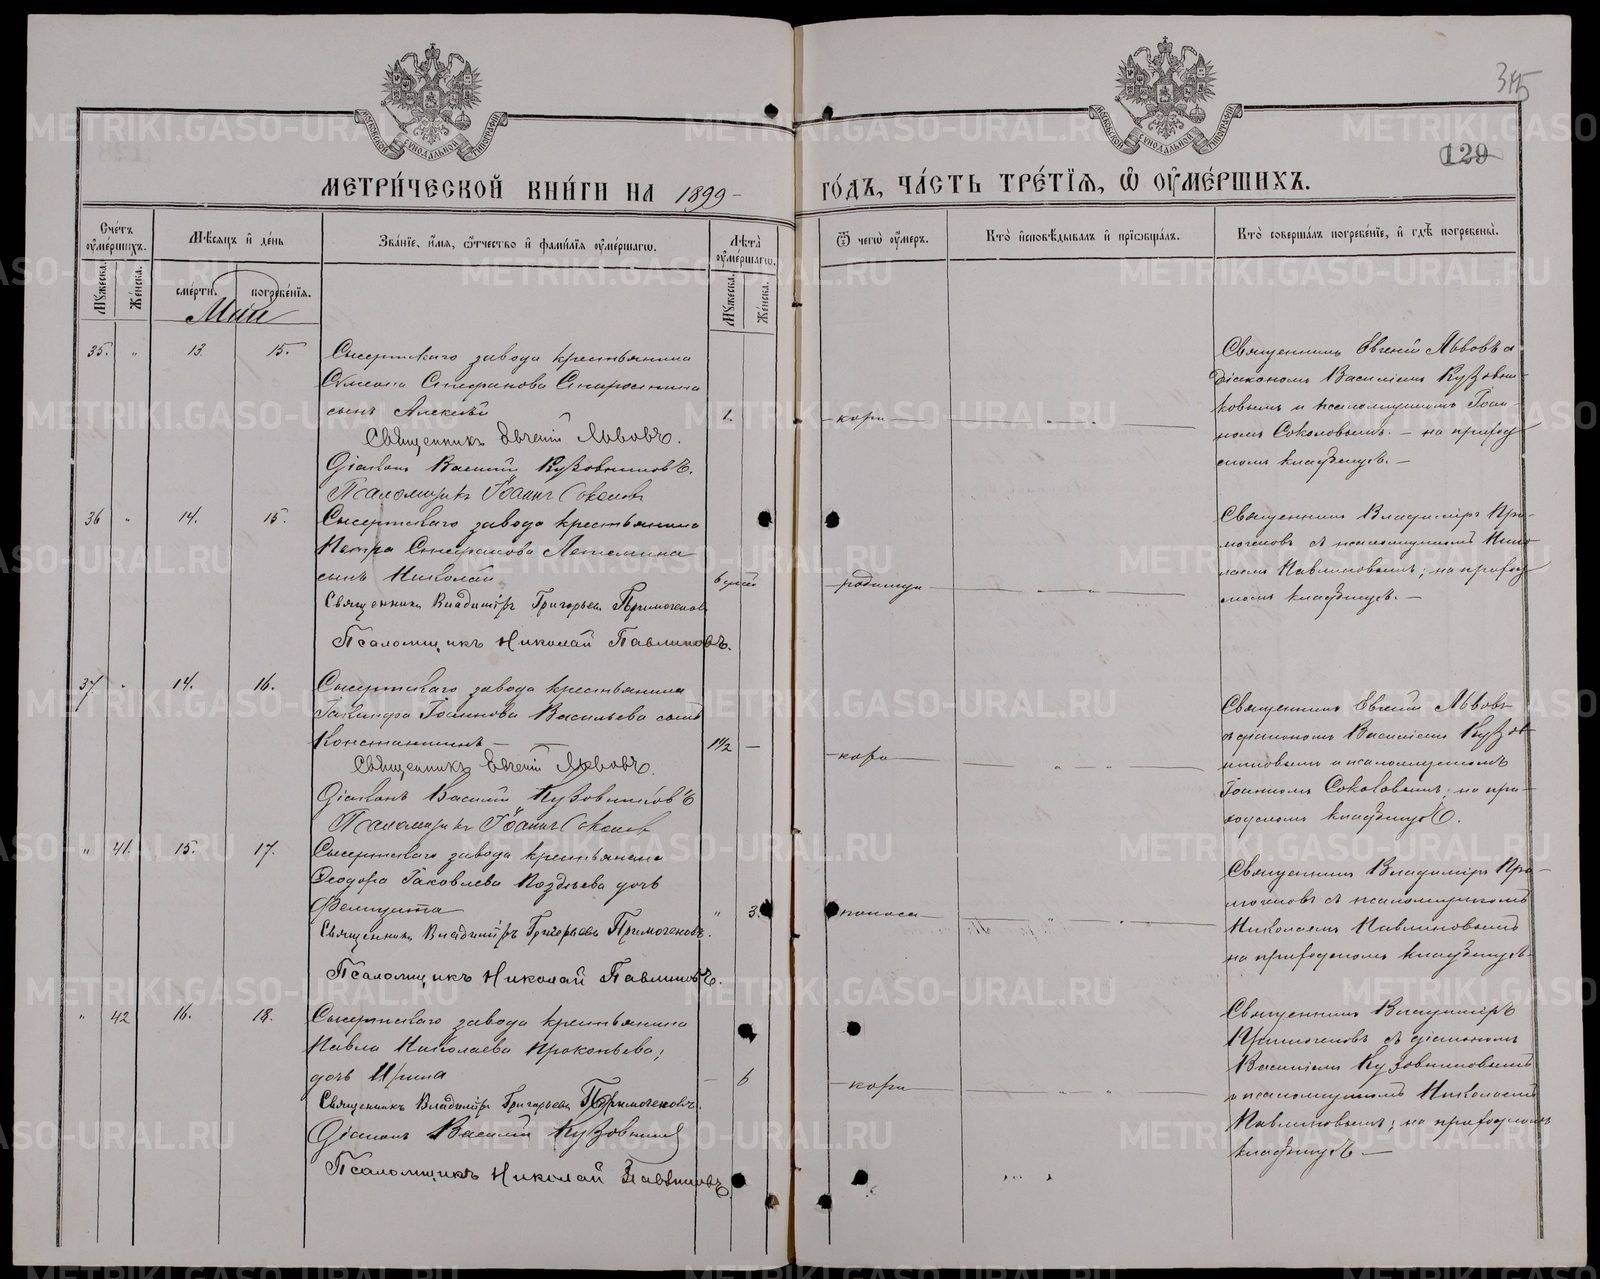 315
129
МЕТРИ́ЧЕСКОЙ КНИ́ГИ НА 1899 ГО́ДЪ, ЧА́СТЬ ТРЕ́ТІѦ, Ѡ ОУМЕ́РШИХЪ.
Сче́тъ оуме́ршихъ.
Мꙋжеска.
Же́нска.
Мѣ́сѧцъ и де́нь
сме́рти.
погребе́нїѧ.
Май
Зва́нїе, и́мѧ, ѻ҆́тчество и фами́лїѧ оуме́ршагѡ.
Лѣ́та оуме́ршагѡ.
Мꙋжеска.
Же́нска.
Ѿ чегѡ̀ оу́меръ.
Кто̀ и҆сповѣ́дывалъ и҆ прїѡбща́лъ.
Кто̀ соверша́лъ погребе́нїе, и҆ гдѣ̀ погребены̀.
35. " 13. 15.
Сысертскаго завода крестьянина
Симеона Стефанова Старостина
сынъ Алексѣй
1.
кори
Священникъ Евгеній Львовъ.
Діаконъ Василій Кузовниковъ.
Псаломщикъ Іоаннъ Соколовъ
Священникъ Евгеній Львовъ съ
діакономъ Василіемъ Кузовни-
ковымъ и псаломщикомъ Іоан-
номъ Соколовымъ. — на приход
скомъ кладбищѣ. —
36 " 14. 15.
Сысертскаго завода крестьянина
Петра Стефанова Летемина
сынъ Николай
6 дней
родимца
Священникъ Владиміръ Григорьевъ Примогеновъ
Псаломщикъ Николай Павлиновъ.
Священникъ Владиміръ При-
могеновъ съ псаломщикомъ Нико-
лаемъ Павлиновымъ; на приход
комъ кладбищѣ. —
37 " 14. 16.
Сысертскаго завода крестьянина
Іоаннова Васильева сынъ
Константинъ —
1 1/2 —
кори
Священникъ Евгеній Львовъ.
Діаконъ Василій Кузовниковъ
Псаломщикъ Іоаннъ Соколовъ
Священникъ Евгеній Львовъ
съ діакономъ Василіемъ Кузов-
никовымъ и псаломщикомъ
Іоанномъ Соколовымъ; на при-
ходскомъ кладбищѣ.
" 41. 15. 17.
Сысертскаго завода крестьянина
Ѳеодора Іаковлева Поздѣева дочь
Фелицата
" 3.
поноса
Священникъ Владиміръ Григорьевъ Примогеновъ.
Псаломщикъ Николай Павлиновъ.
Священникъ Владиміръ При-
могеновъ съ псаломщикомъ
Николаемъ Павлиновымъ
на приходскомъ кладбищѣ
" 42 16. 18.
Сысертскаго завода крестьянина
Павла Николаева Прокопьева,
дочь Ирина
— 6
кори
Священникъ Владиміръ Григорьевъ Примогеновъ.
Діаконъ Василій Кузовниковъ
Псаломщикъ Николай Павлиновъ
Священникъ Владиміръ
Примогеновъ съ діакономъ
Василіемъ Кузовниковымъ
и псаломщикомъ Николаемъ
Павлиновымъ; на приходскомъ
кладбищѣ —
METRIKI.GASO-URAL.RU